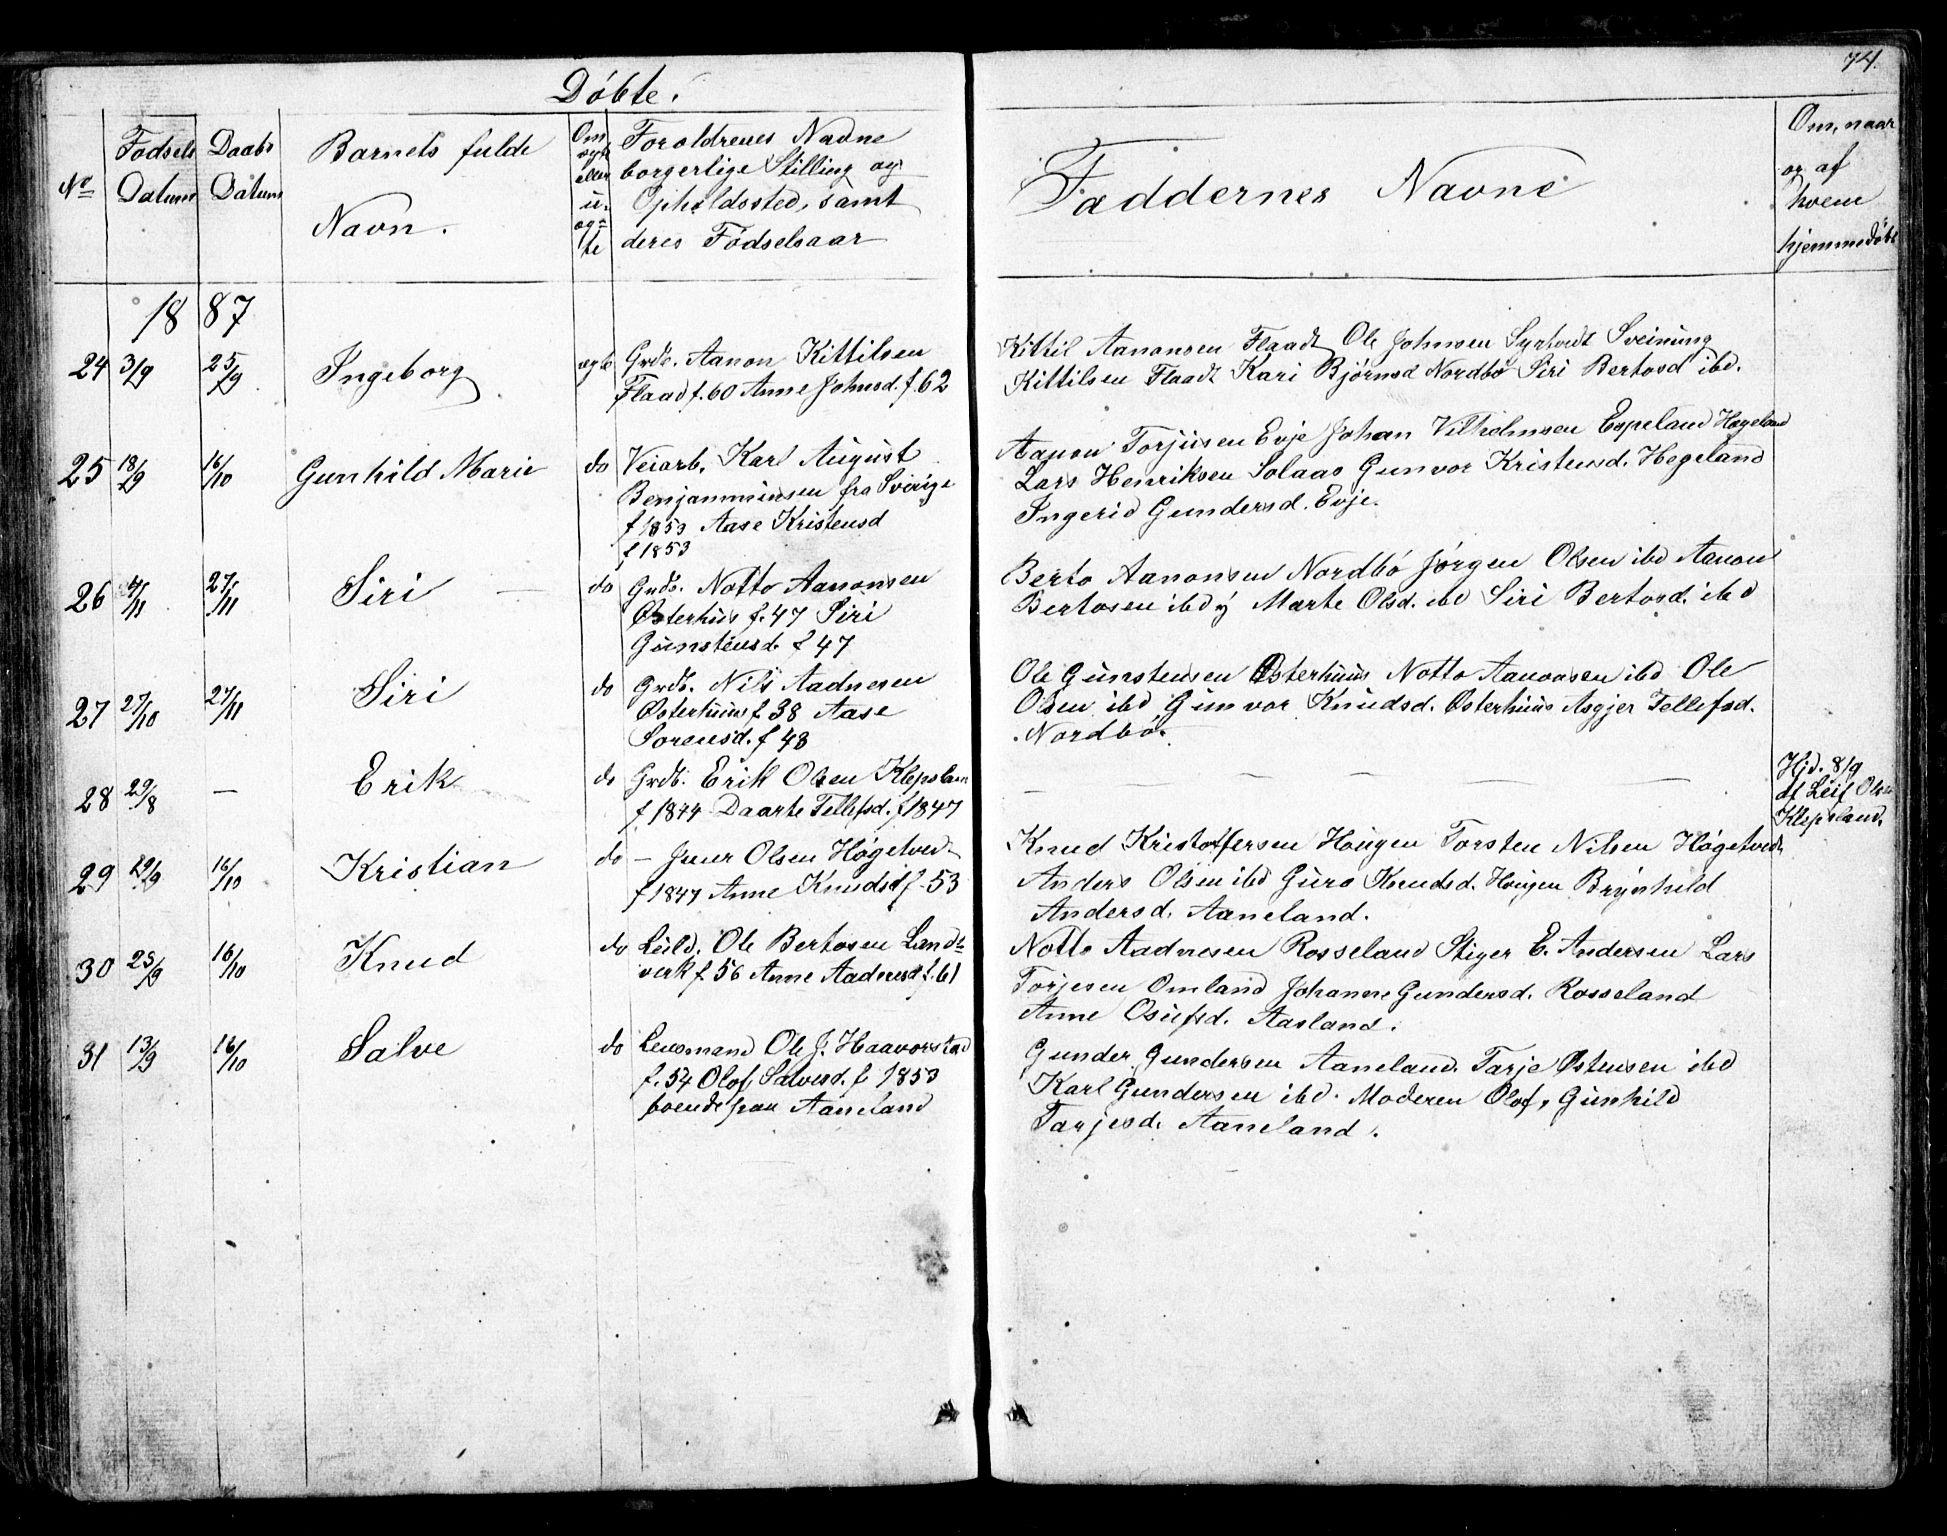 74.
Döbte.
No
Fødsels
Datum
Daabs
Datum
Barnets fulde
Navn.
Om
ægte
eller
u-
ægte
Foroldrenes Navne
borgerlige Stilling og
Opholdssted, samt
deres Fødselsaar
Faddernes Navne
Om, naar
og af
hvem
hjemmedøbt
18 87
24 3/9 25/9 Ingeborg ægte Grdb. Aanon Kittilsen
Flaad f. 60 Anne Johnsd. f. 62
Kittil Aanonsen Flaadt Ole Johnsen Syrtvedt Sveinung
Kittilsen Flaadt Kari Bjørnsd Nordbø Siri Bertosd ibd.
25 18/9 16/10 Gunhild Marie do Veiarb. Karl August
Benjamminsen fra Sverige
f 1853 Aase Kristensd
f 1853
Aanon Torjusen Evje Johan Vilhelmsen Espeland Hægeland
Lars Henriksen Solaas Gunvor Kristensd. Hegeland
Ingerid Gundersd. Evje.
26 4/11 27/11 Siri do Grdb. Notto Aanonsen
Østerhus f. 47 Siri
Gunstensd. f 47
Berto Aanonsen Nordbö Jørgen Olsen ibd Aanon
Bertosen ibd Marte Olsd. ibd Siri Bertosd. ibd
27 27/10 27/11 Siri do Grdb. Nils Aadnesen
Østerhuus f. 38 Aase
Sorensd. f 48
Ole Gunstensen Østerhuus Notto Aanonsen ibd Ole
Olsen ibd Gunvor Knudsd. Østerhuus Asgjer Tellefsd.
Nordbö.
28 29/8 — Erik do Grdb. Erik Olsen Klepsland
f 1844 Daarte Tellefsd. f 1847
— — — — —
Hjd. 8/9
af Leif Olsen
Klepsland.
29 29/9 16/10 Kristian do — Juur Olsen Høgetvedt
f 1847 Anne Knudsd f. 53
Knud Kristoffersen Hougen Torsten Nilsen Høgetvedt
Anders Olsen ibd Guro Knudsd. Hougen Brynhild
Andersd. Aaneland.
30 25/9 16/10 Knud do Leild. Ole Bertosen Lands-
verk f. 56 Anne Aadnesd f. 61
Notto Aadnesen Rosseland Stiger E. Andersen Lars
Torjesen Omland Johanne Gundersd. Rosseland
Anne Osufsd. Aasland.
31 13/9 16/10 Salve do Lensmand Ole J. Haavorstad
f. 54 Olof Salvesd. f. 1853
boende paa Aaneland
Gunder Gundersen Aaneland. Tarje Østensen ibd
Karl Gundersen ibd. Moderen Olof, Gunhild
Tarjesd. Aaneland.